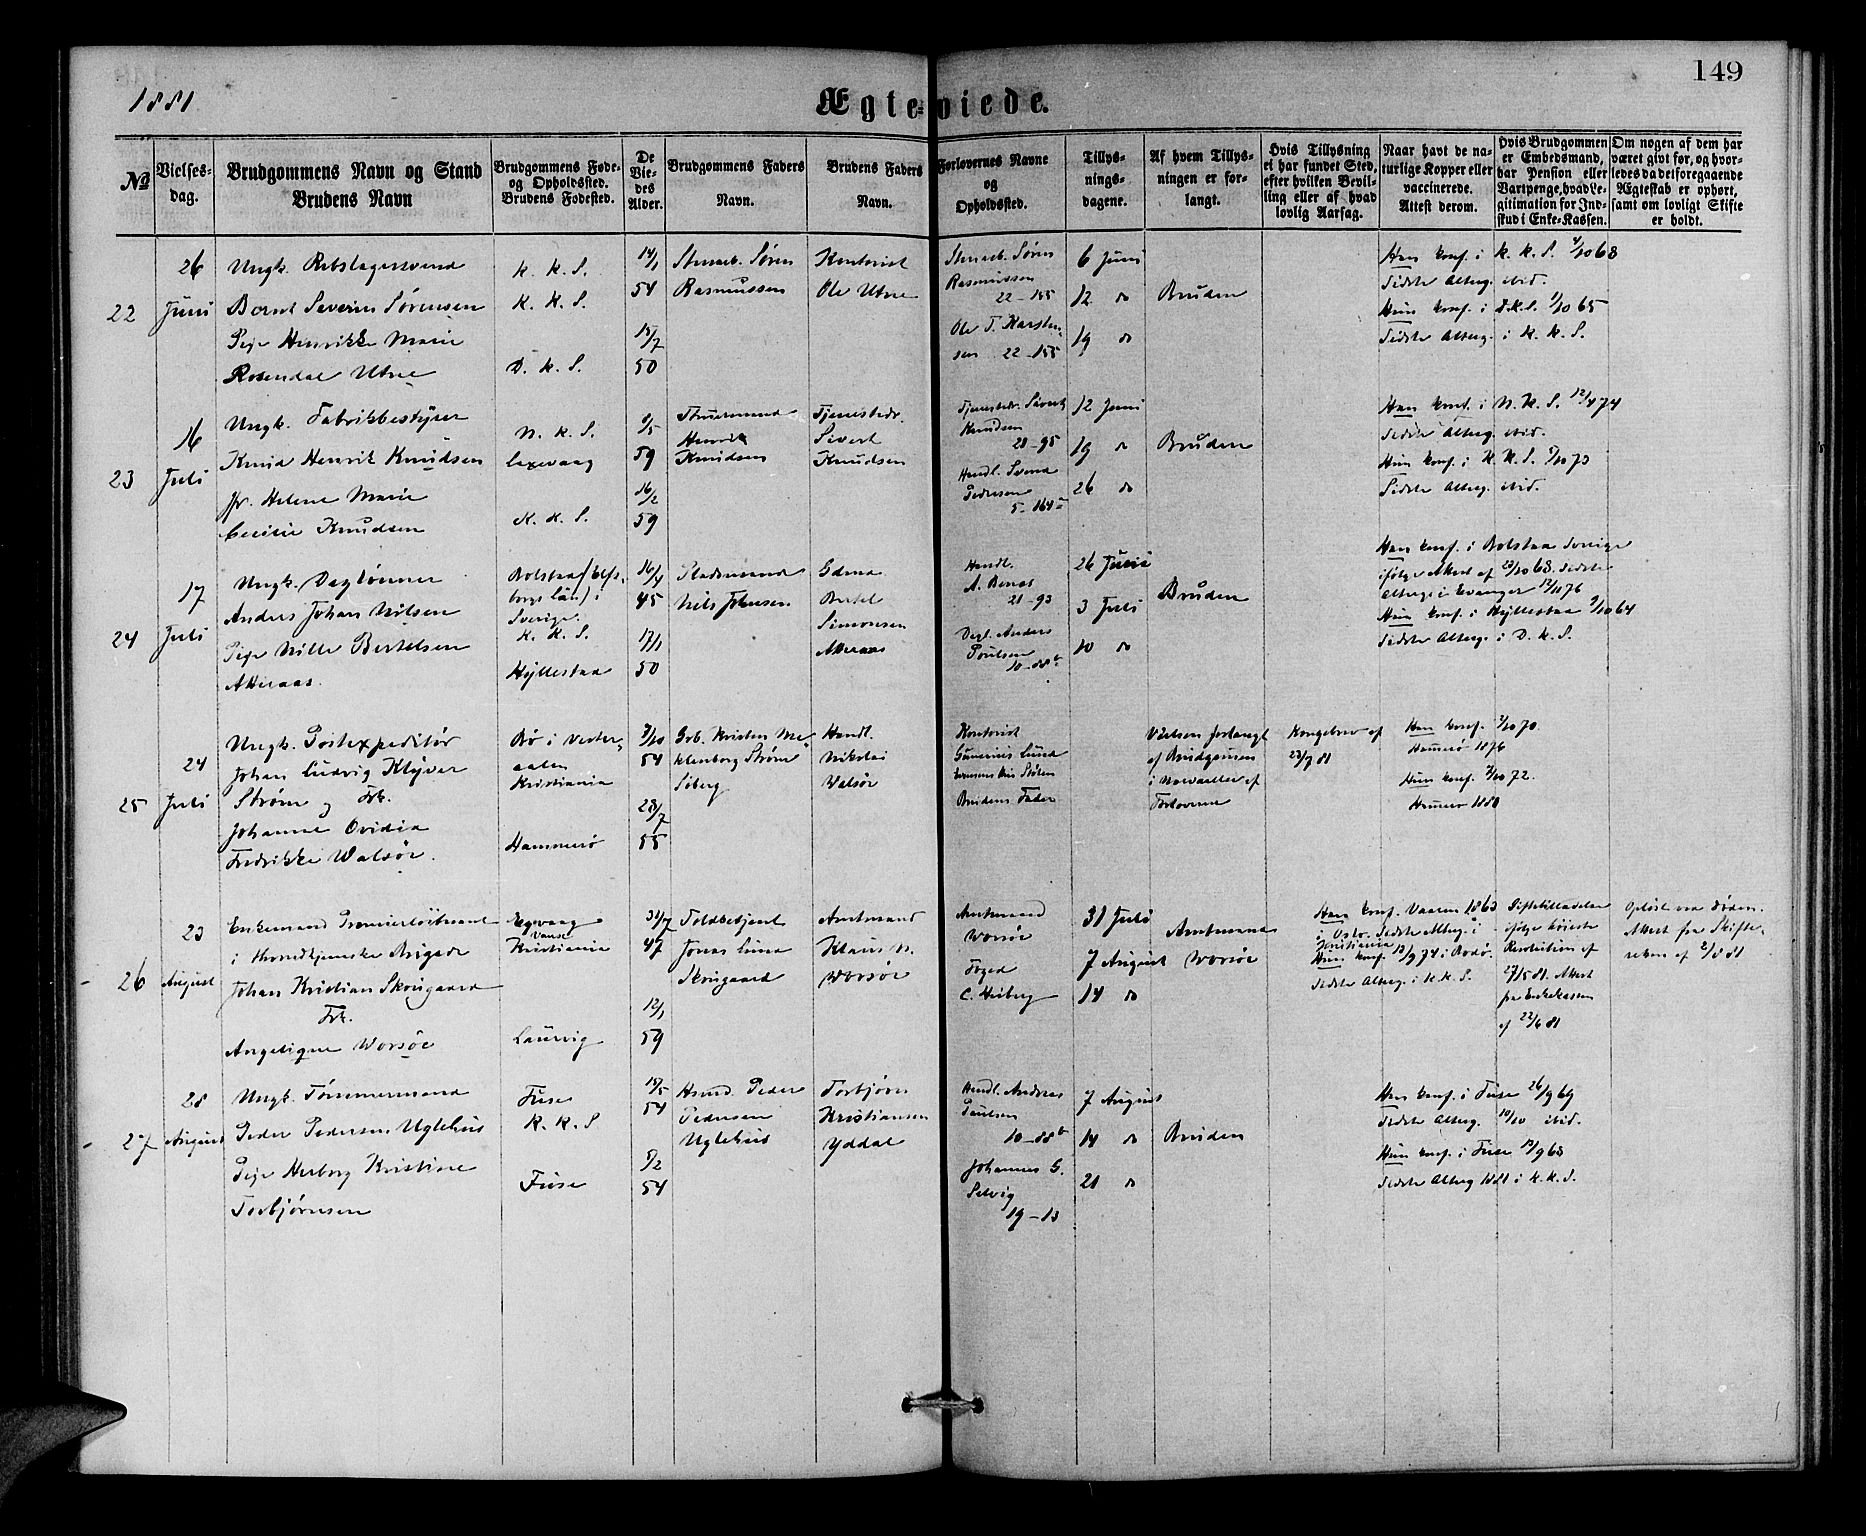 1881
Ægteviede.
149
No
Vielses-
dag.
Brudgommens Navn og Stand
Brudens Navn
Brudgommens Føde-
og Opholdssted.
Brudens Fødested.
De
Vie-
des
Alder.
Brudgommens Faders
Navn.
Brudens Faders
Navn.
Forlovernes Navne
og
Opholdssted.
Tillys-
nings-
dagene.
Af hvem Tillys-
ningen er for-
langt.
Hvis Tillysning
ei har fundet Sted,
efter hvilken Bevil-
ling eller af hvad
lovlig Aarsag.
Naar havt de na-
turlige Kopper eller
vaccinerede.
Attest derom.
Hvis Brudgommen
er Embedsmand,
har Pension eller
Vartpenge, hvad Le-
gitimation for Ind-
skud i Enke-Kassen.
Om nogen af dem har
været gift før, og hvor-
ledes da det foregaaende
Ægteskab er ophørt,
samt om lovligt Skifte
er holdt.
22
26
Juni
Ungk. Rebslagersvend
Bernt Severin Sørensen
Pige Henrikke Marie
Rosendal Utne
K. K. S.
K. K. S.
D. K. S.
14/1
54
15/7
50
Stenarb. Søren
Rasmussen
Kontorist
Ole Utne
Stenarb. Søren
Rasmussen
22-155
Ole T. Karsten-
sen 22-155
6 Juni
12 do
19 do
Bruden
Han konf. i K. K. S. 4/10 68
Sidste Alterg. ibid.
Hun konf. i D.K.S. 1/10 65
Sidste Alterg. i K. K. S.
23
16
Juli
Ungk. Fabrikbestyrer
Knud Henrik Knudsen
Jfr. Helene Marie
Cecilie Knudsen
N. K. S.
Laxevaag
K. K. S.
9/5
59
16/2
59
Henrik
Knudsen
Tjenestedr.
Sivert
Knudsen
Tjenestedr. Sivert
Knudsen
28-95
Handl. Svend
Pedersen
5-164
12 Juni
19 do
26 do
Bruden
Han konf. i N. K. S. 12/4 74
Sidste Alterg. ibid.
Hun konf. i K. K. S. 5/10 73
Sidste Alterg. ibid.
24
17
Juli
Ungk. Daglønner
Anders Johan Nilsen
Pige Nille Bertelsen
Akeraas.
Bolstad (Elfs-
borgs Län) i
Sverige.
K. K. S.
Hyllestad
16/4
45
17/1
50
Nils Johnsen
Gdmd
Bertel
Simonsen
Akeraas
Handl.
A. Benas
21-93
Dagl. Anders
Poulsen
10-88b
26 Juni
3 Juli
10 do
Bruden
Han konf. i Bolstad Sverige
ifølge Attest af 23/10 68. Sidste
Alterg. i Evanger 12/11 76
Hun konf. i Hyllestad 9/10 64
Sidste Alterg. i D. K. S.
25
24
Juli
Ungk. Postexpeditør
Johan Ludvig Klyver
Strøm og Frk.
Johanne Ovidia
Fredrikke Walsør.
Bø i Vester-
aalen
Kristiania
Hammerø
7/10
54
28/7
55
Grb. Kristen Me-
klenborg Strøm
Siberg
Handl.
Nikolai
Walsør
Kontorist
Gunerius Lund
Brudens Fader
Vielsen forlangt
af Brudgommen
i Nærværelse af
Forloverne
Kongebrev af
23/7 81
Han konf. 2/10 70.
Hammerø 1876
Hun konf. 2/10 72.
Hammerø 1880
26
23
August
Enkemand Premierløitnant
i Throndhjemske Brigade
Johan Kristian Skougaard
Frk.
Angelique Worsøe
Egvaag
Vanse
Kristiania
Laurvig
31/7
47
12/1
59
Toldbetjent
Jonas Lund
Skougaard
Amtmand
Klaus N.
Worsøe
Amtmand
Worsøe
Foged
C. Heiberg
31 Juli
7 August
14 do
Amtmand
Worsøe
Han konf. Vaaren 1863
i Oslo. Sidste Alterg. i
Kristiania
Hun konf. 13/9 74 i Bodø.
Sidste Alterg. i K. K. S.
Giftetilladelse
ifølge høieste
Resolution af
27/5 81. Attest
fra Enkekassen
af 22/6 81
Opløst ved Døden.
Attest fra Skifte-
retten af 2/8 81
27
28
August
Ungk. Tømmermand
Peder Pedersen Uglehus
Pige Herborg Kristine
Torbjørnsen
Fuse
K. K. S
Fuse
15/5
54
5/2
54
Hsmd. Peder
Pedersen
Uglehus
Torbjørn
Kristiansen
Yddal
Handl. Andreas
Paulsen
10-88b
Johannes G.
Selvig
19-13
7 August
14 do
21 do
Bruden
Han konf. i Fuse 26/9 69
Sidste Alterg. 10/10 ibid.
Hun konf. i Fuse 13/9 68
Sidste Alterg 1881 i K. K. S.